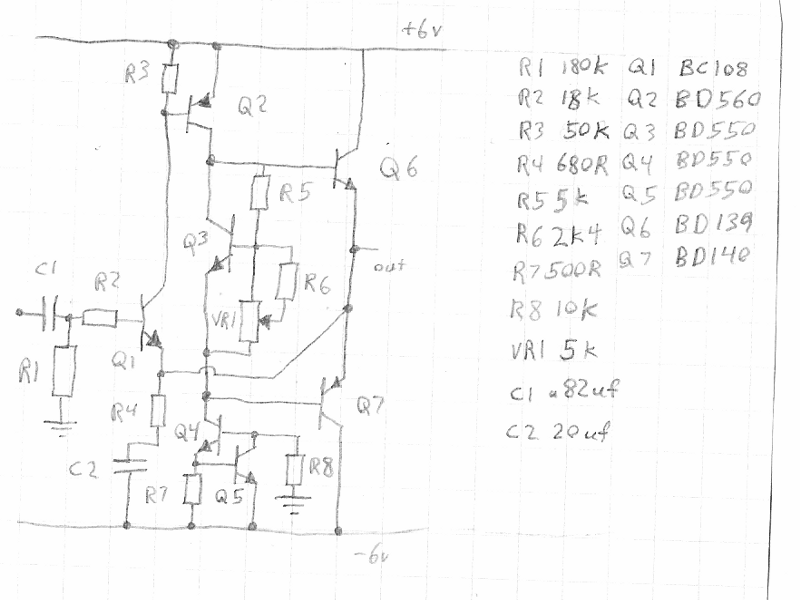 +6v
R3
Q2
Q6
R5
Q3
out
C1
R2
R6
VR1
Q1
R1
R4
Q7
Q4
C2
R7
Q5
R8
-6v
R1 180k Q1 BC108
R2 18k Q2 BD560
R3 50k Q3 BD550
R4 680R Q4 BD550
R5 5k Q5 BD550
R6 2k4 Q6 BD139
R7 500R Q7 BD140
R8 10k
VR1 5k
C1 .82uf
C2 20uf